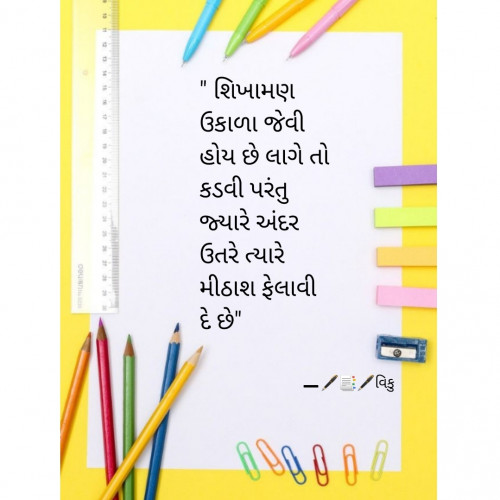 " શિખામણ
ઉકાળા જેવી
હોય છે લાગે તો
કડવી પરંતુ
જ્યારે અંદર
ઉતરે ત્યારે
મીઠાશ ફેલાવી
દે છે"
—🖋️📑🖋️વિકુ